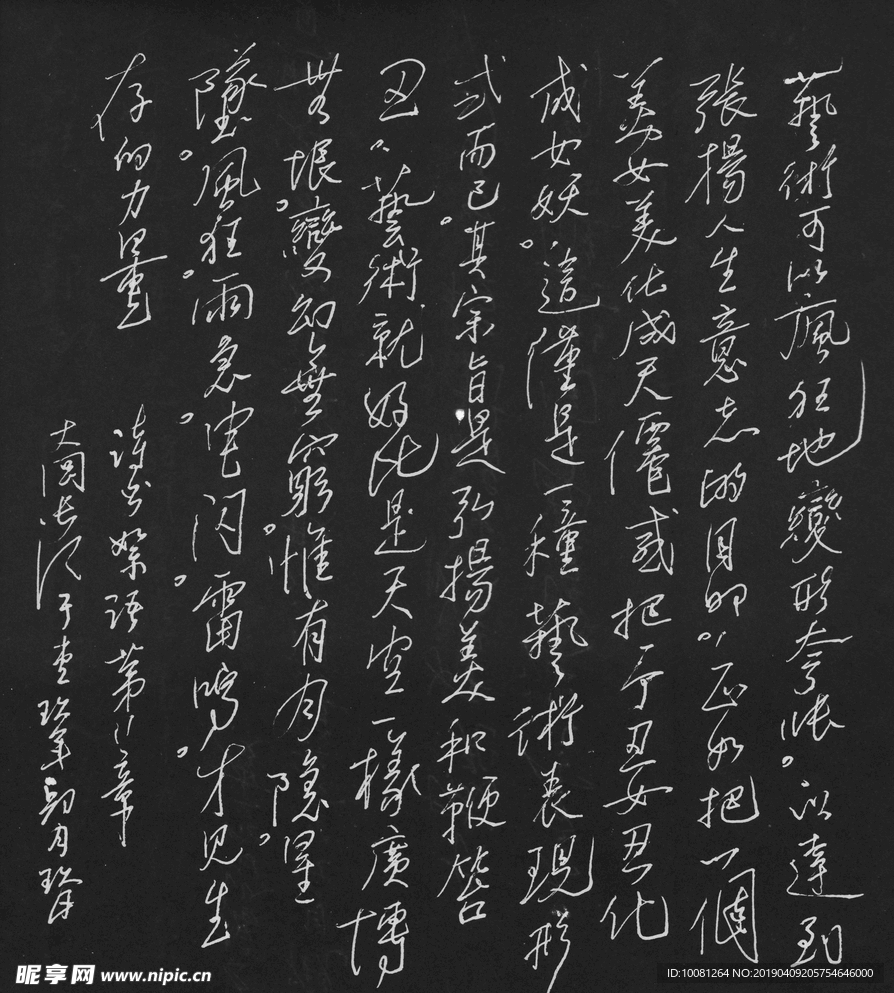 藝術可以瘋狂地變形夸张。以達到
張揚人生意志的目的，正如把一個
美女美化成天僊或把一个丑女丑化
成女妖。這僅是一種藝術表現形
式而已。其宗旨是弘揚美和鞭笞
丑，藝術就好比是天空一樣廣博
無垠。變幻無窮。惟有月隐星
墜。風狂。雨急。電闪。雷鳴。才见生
存的力量
語第11章
大
昵享网 www.nipic.cn
ID:10081264 NO:20190409205754646000